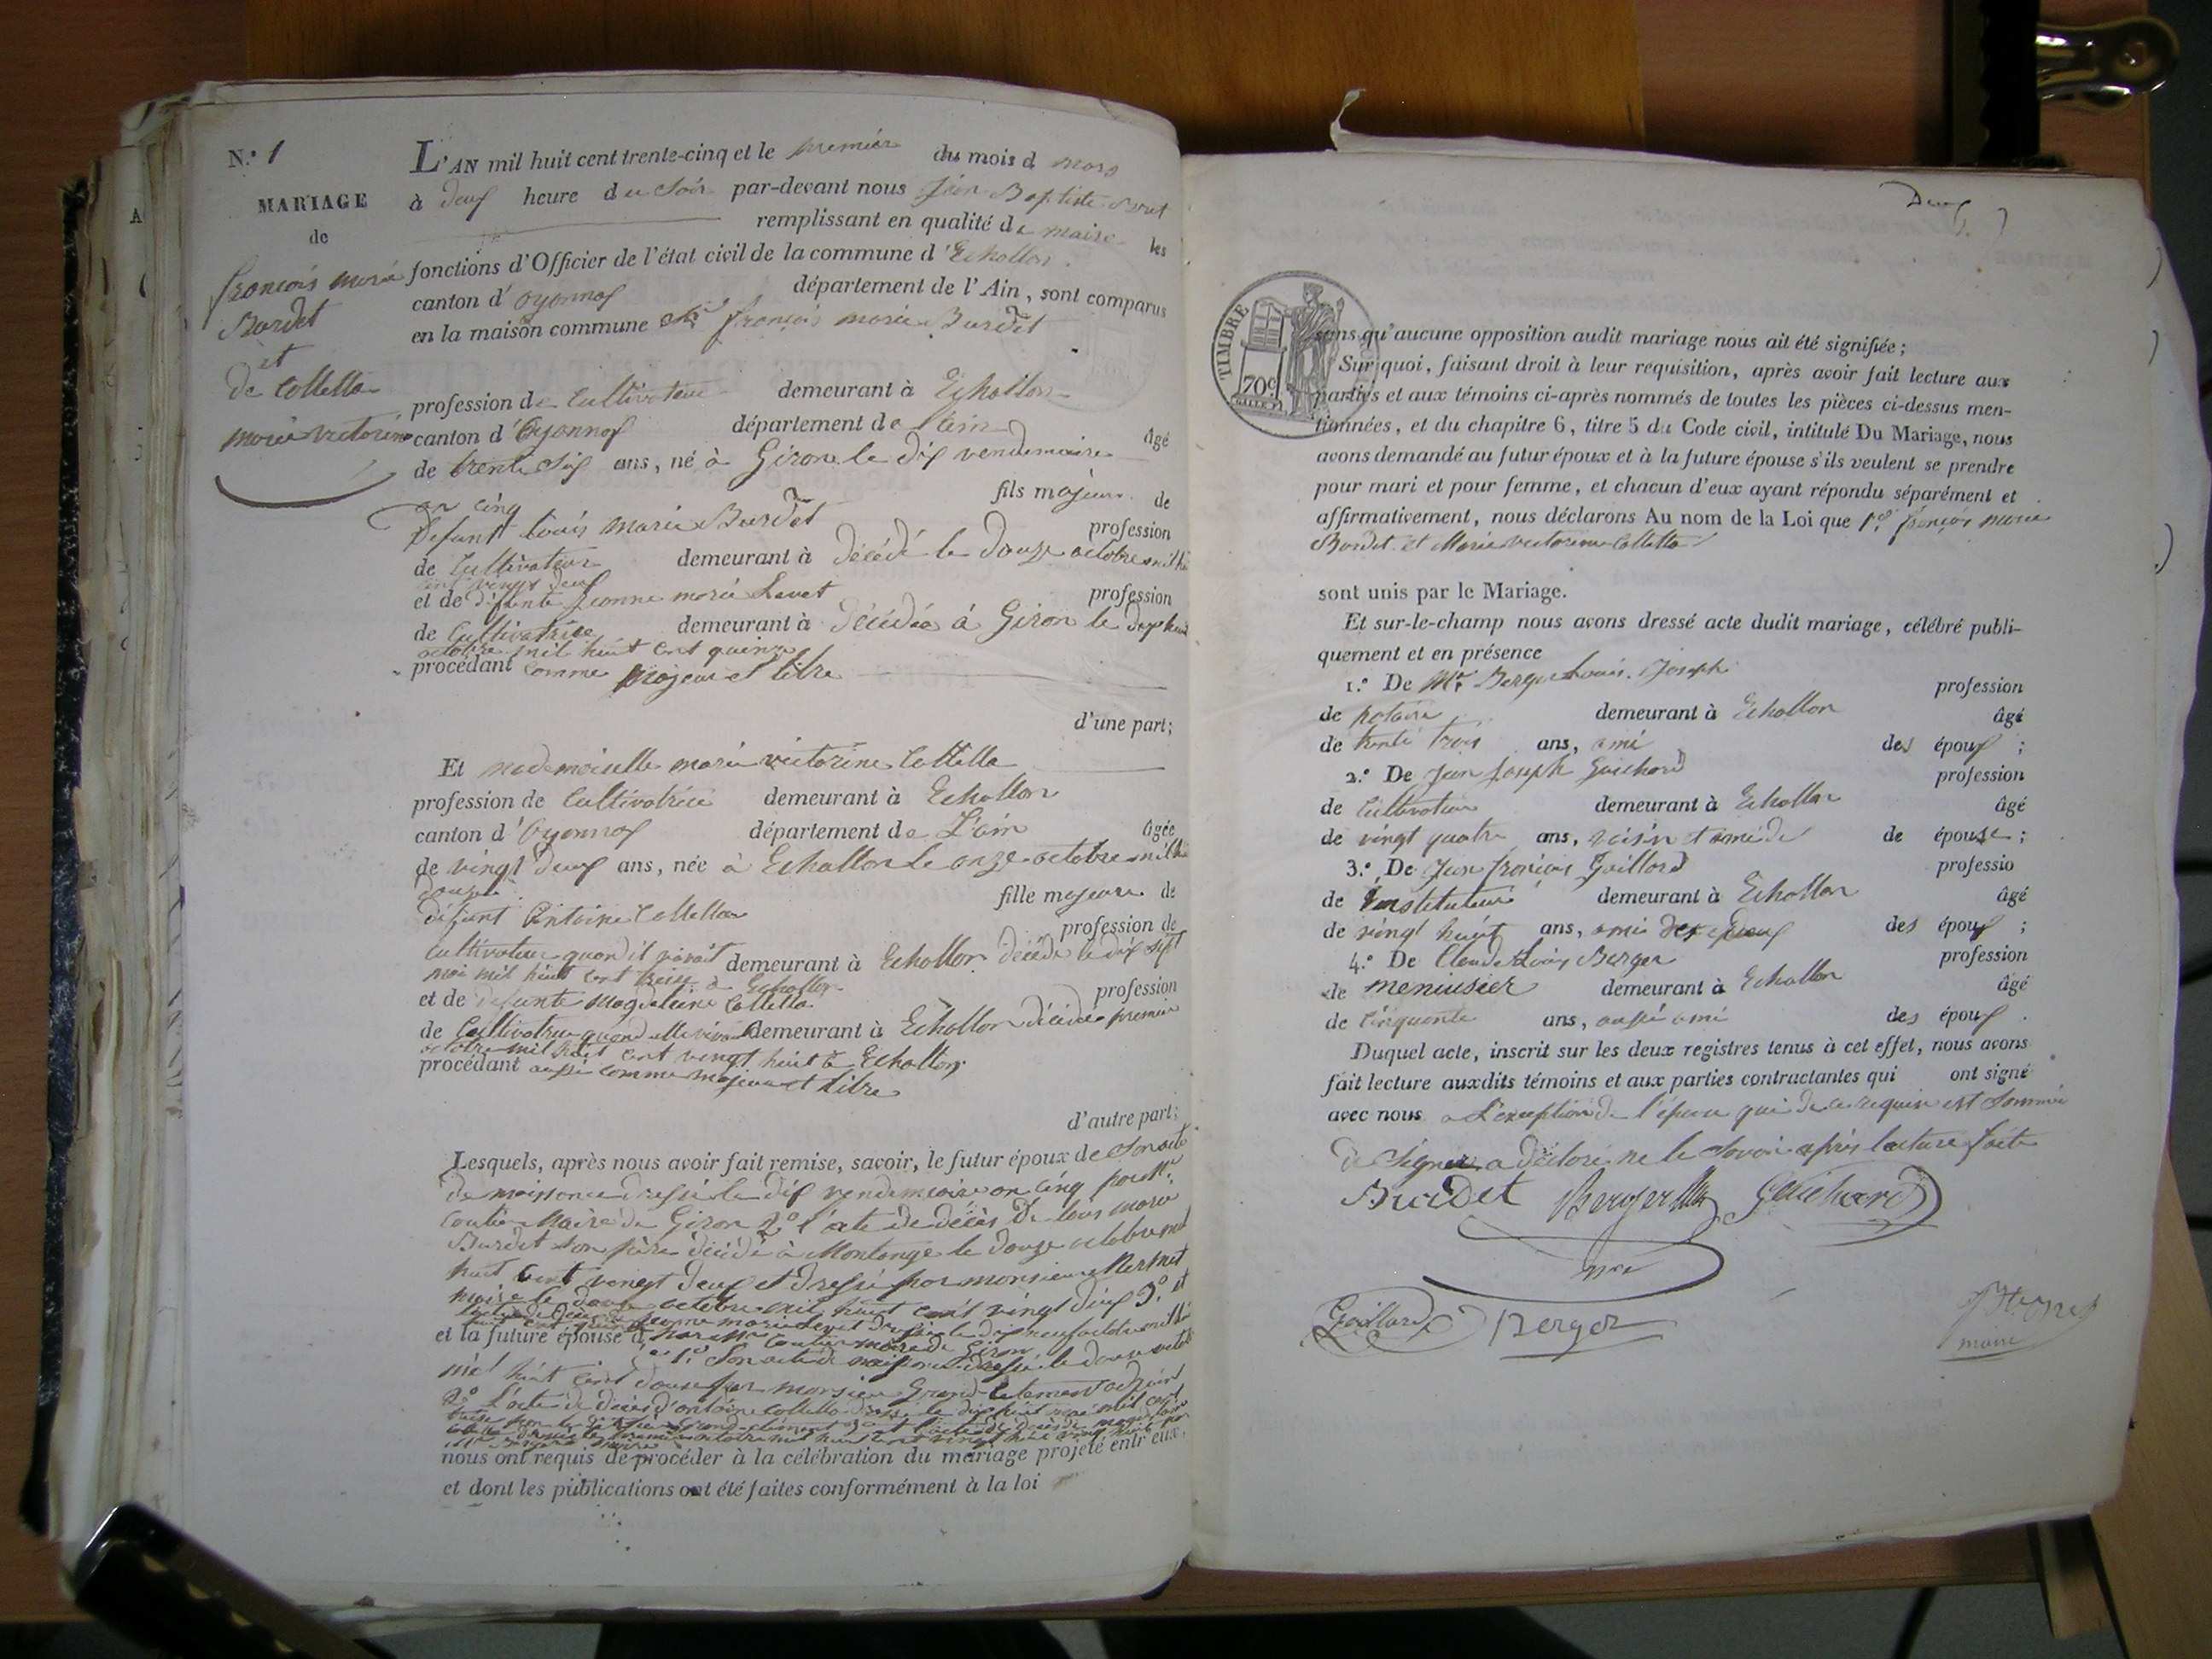 N.º 1
MARIAGE
de
françois marie
Burdet
et
de Collella
marie victorine
L'AN mil huit cent trente-cinq et le premier du mois d mars
à deux heure du soir par-devant nous Jean Baptiste
remplissant en qualité de maire les
fonctions d'Officier de l'état civil de la commune d'Echallon
canton d'oyonnax département de l'Ain, sont comparus
en la maison commune françois marie Burdet
profession de Cultivateur demeurant à Echallon
canton d'Oyonnax département de l'ain âgé
de trente six ans, né à Giron le dix vendemiaire
an cinq fils majeur de
défunt Louis marie Burdet profession
de Cultivateur demeurant à décédé le douze octobre mil
cent vingt deux
et de défunte Jeanne marie profession
de Cultivatrice demeurant à décédée à Giron le
octobre mil huit cent quinze
procédant comme majeur et libre
d'une part;
Et mademoiselle marie victorine Collella
profession de Cultivatrice demeurant à Echallon
canton d'Oyonnax département de L'ain âgée
de vingt deux ans, née à Echallon le onze octobre mil
douze fille majeure de
défunt Antoine Collella profession de
cultivateur quand il vivait demeurant à Echallon décédé le dix sept
mai mil huit cent treize à Echallon
et de défunte magdelaine Collella profession
de Cultivatrice quand elle vivait demeurant à Echallon décédée premier
octobre mil huit cent vingt huit à Echallon
procédant aussi comme majeure et libre
d'autre part;
Lesquels, après nous avoir fait remise, savoir, le futur époux de Son acte
de naissance dressé le dix vendemiaire an cinq par Mr
maire de Giron 2º l'acte de décès de
Burdet son père décédé à Montange le douze octobre mil
huit Cent vingt deux et dressé par monsieur
maire le douze octobre mil huit cent vingt deux 3º et
et la future épouse d
1º Son acte de naissance dressé le douze
mil huit cent douze par monsieur Grand Clement adjoint
2º L'acte de décès d'antoine Collella dressé le dix huit mai mil
nous ont requis de procéder à la célébration du mariage projeté entr'eux,
et dont les publications ont été faites conformément à la loi
Deux
TIMBRE
70c
sans qu'aucune opposition audit mariage nous ait été signifiée;
Sur quoi, faisant droit à leur requisition, après avoir fait lecture aux
parties et aux témoins ci-après nommés de toutes les pièces ci-dessus men-
tionnées, et du chapitre 6, titre 5 du Code civil, intitulé Du Mariage, nous
avons demandé au futur époux et à la future épouse s'ils veulent se prendre
pour mari et pour femme, et chacun d'eux ayant répondu séparément et
affirmativement, nous déclarons Au nom de la Loi que françois marie
Burdet et Marie victorine Collella
sont unis par le Mariage.
Et sur-le-champ nous avons dressé acte dudit mariage, célébré publi-
quement et en présence
1.º De Mr Berger Louis Joseph profession
de notaire demeurant à Echallon âgé
de trente trois ans, ami des époux ;
2.º De Jean Joseph Guichard profession
de Cultivateur demeurant à Echallon âgé
de vingt quatre ans, voisin et ami de de épouse ;
3.º De Jean françois Gaillard professio
de Instituteur demeurant à Echallon âgé
de vingt huit ans, ami des époux des époux ;
4.º De Claude Louis Berger profession
de meniusier demeurant à Echallon âgé
de Cinquante ans, aussi ami des époux .
Duquel acte, inscrit sur les deux registres tenus à cet effet, nous avons
fait lecture auxdits témoins et aux parties contractantes qui ont signé
avec nous a L'exception de l'épouse qui de ce requise et Sommée
de Signer a déclaré ne le Savoir après lecture faite
Burdet Berger Guichard
Gaillard Berger
maire